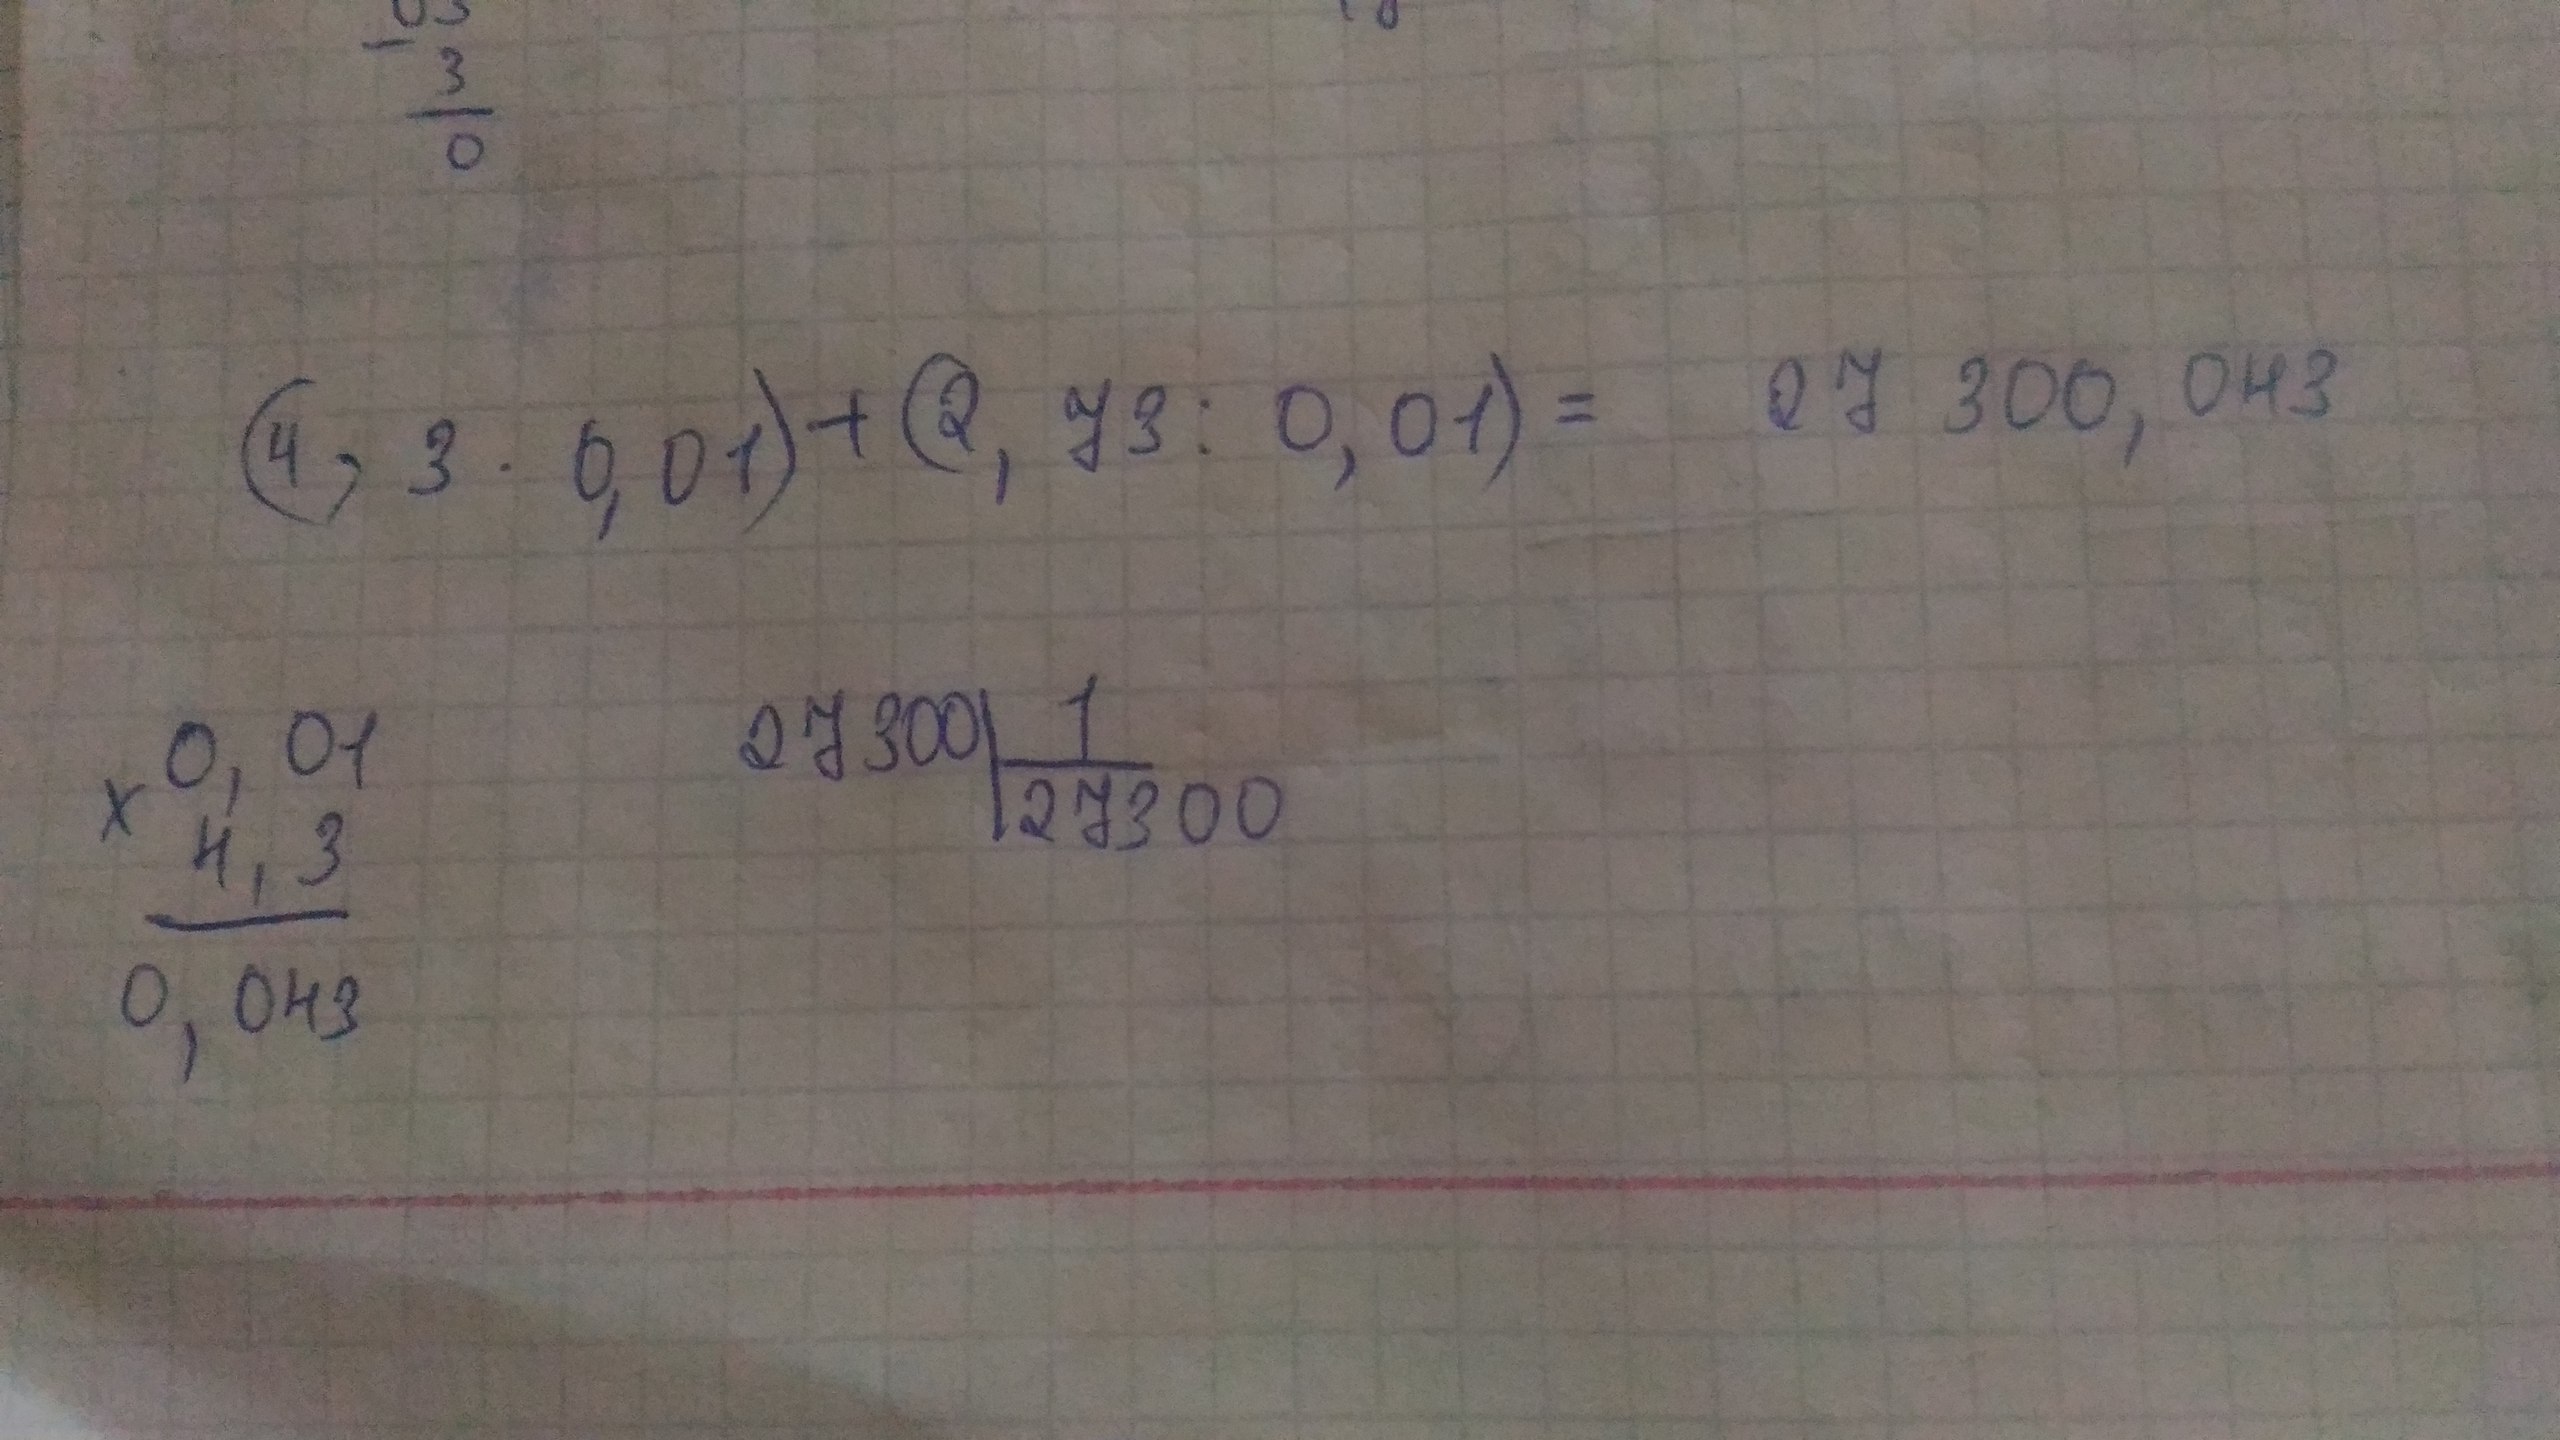 03
- 3
0
(4, 3 · 0, 01) + (2, 73 : 0, 01) = 27 300, 043
x 0, 01 27300 | 1
4, 3 27300
0, 043